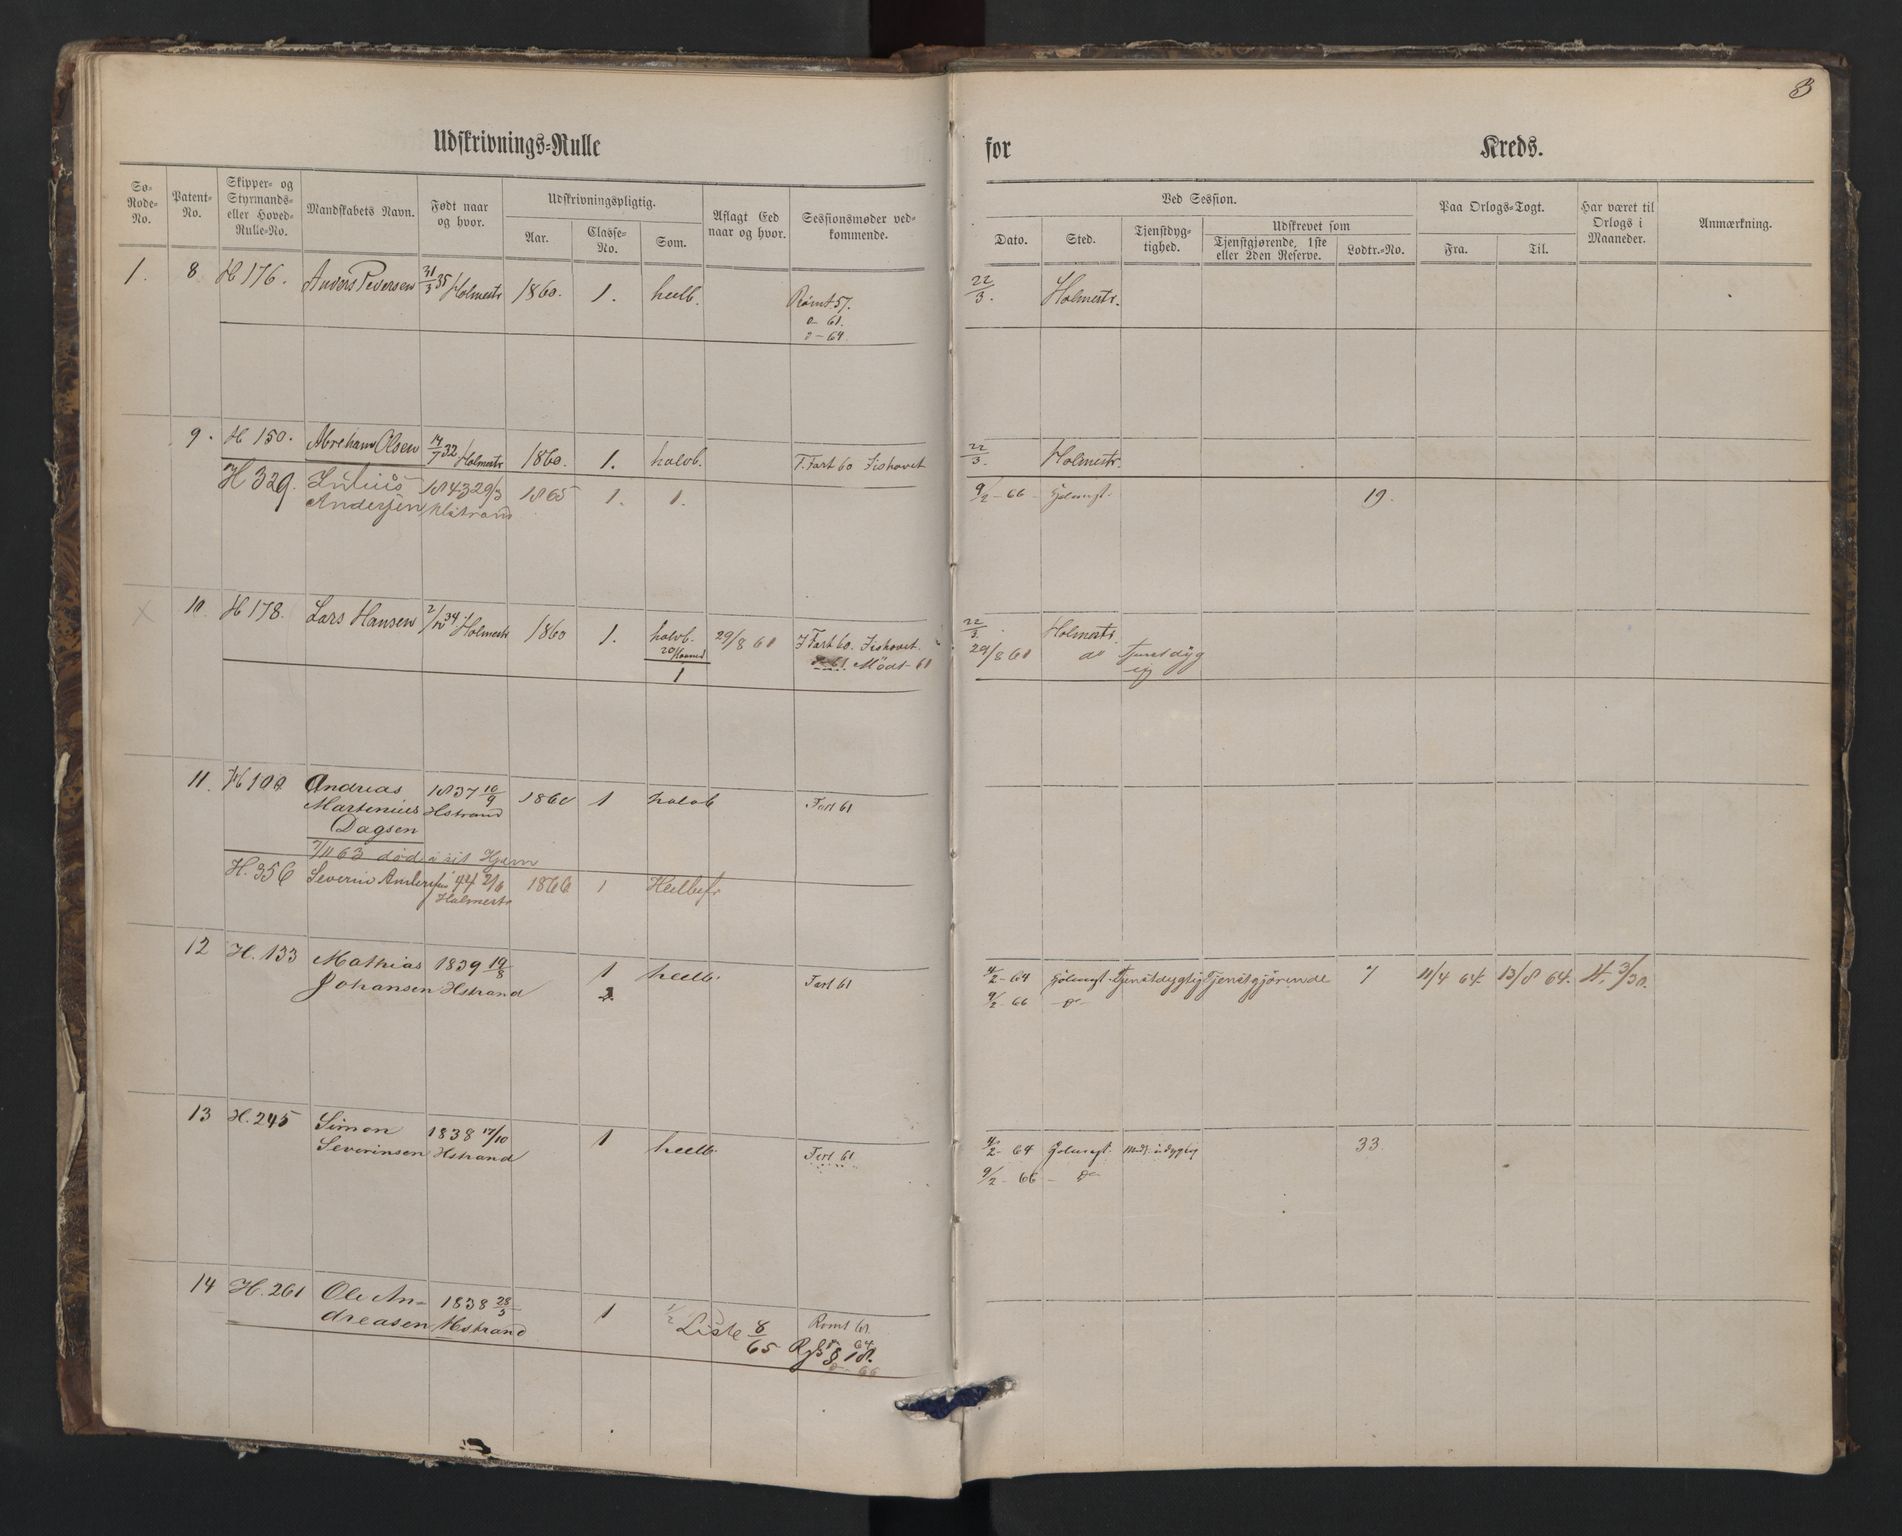 8
Udskrivnings-Rulle for Kreds.
Sø-Rode-No. Patent-No. Skipper- og Styrmands- eller Hoved-Rulle-No. Mandskabets Navn. Født naar og hvor. Udskrivningspligtig. Aar. Classe-No. Som. Aflagt Eed naar og hvor. Sessionsmøder vedkommende.
Ved Session. Dato. Sted. Tjenstdygtighed. Udskrevet som Tjenstgjørende, 1ste eller 2den Reserve. Lodtr.-No. Paa Orlogs-Togt. Fra. Til. Har været til Orlogs i Maaneder. Anmærkning.
1. 8 H 176. Anders Pedersen 31/3 35 Holmestr 1860. 1. heelb. Rømt 57. 22/3. Holmestr.
o- 61.
o- 64.
9. H 150. Abraham Olsen 14/7 32 Holmestr 1860. 1. halvb. T. Fart 60 22/3. Holmestr.
H 329. Julius 1843 29/3 1865 1. 1. 9/2-66 19.
Andersen Hstrand
10. H 178. Lars Hansen 2/12 34 Holmestr 1860 1. halvb. 29/8 61 I Fart 60. 22/3. Holmestr.
Mødt 61 29/8 61 do Tjenstdyg
1
11. H 100 Andreas 1837 10/9 1860 1 halvb Fart 61
Martenius Hstrand
Dagsen
7/11 63 død i sit Hjem
H. 356 Severin Andersen 44 2/6 1866 1 Heelbef.
Holmestr
12 H. 133 Mathias 1839 19/8 1 heelb. Fart 61 4/2-64 Tjenstdygtig Tjenstgjørende 7 11/4 64. 13/8 64. 4. 3/30.
Johansen Hstrand 9/2-66 -do-
13 H. 245 Simon 1838 17/10 1 heelb. Fart 61 4/2-64 33
Severinsen Hstrand 9/2-66 - do-
14 H. 261 Ole An- 1838 28/3 1 1/2 Liste 8/65 Rømt 61.
dreasen Hstrand 64
o- 66